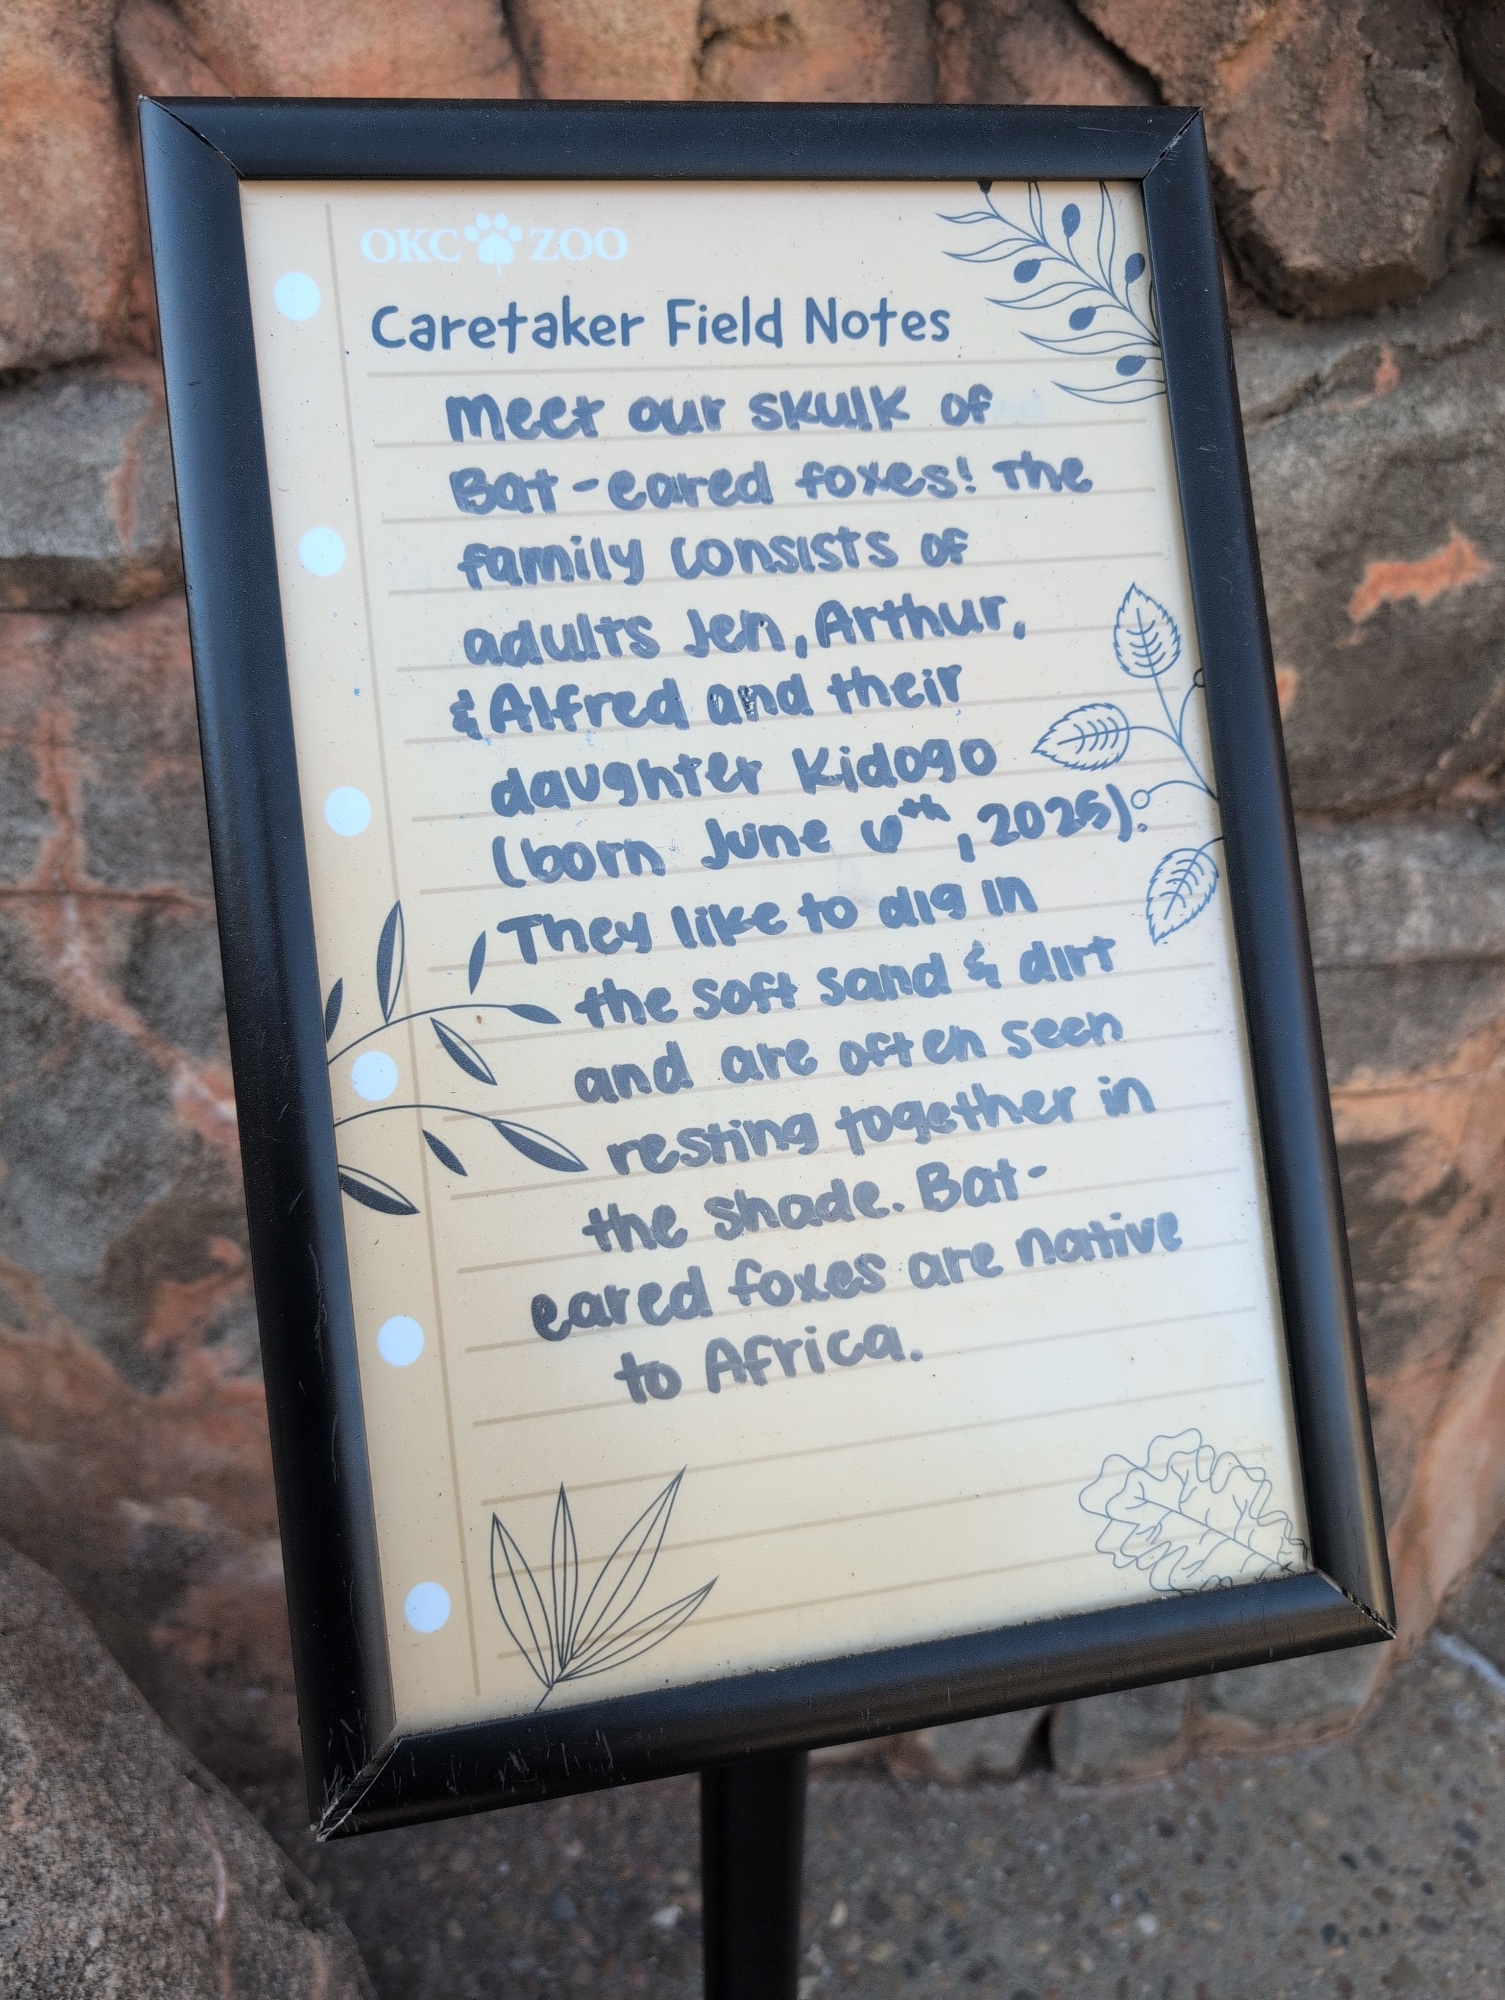 OKC ZOO
Caretaker Field Notes
Meet our skulk of
Bat-eared foxes! The
family consists of
adults Jen, Arthur,
& Alfred and their
daughter Kidogo
(born June 6th, 2025).
They like to dig in
the soft sand & dirt
and are often seen
resting together in
the shade. Bat-
eared foxes are native
to Africa.